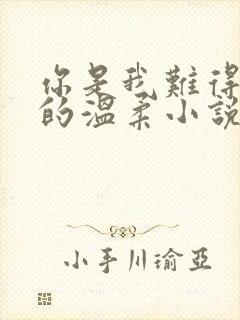 你是我難得
的溫柔小說
小手川瑜亞